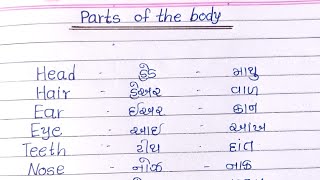 Parts of the body
Head - હેડ - માથુ
Hair - હેઅર - વાળ
Ear - ઈઅર - કાન
Eye - આઈ - આંખ
Teeth - ટીથ - દાંત
Nose - નોઝ - નાક